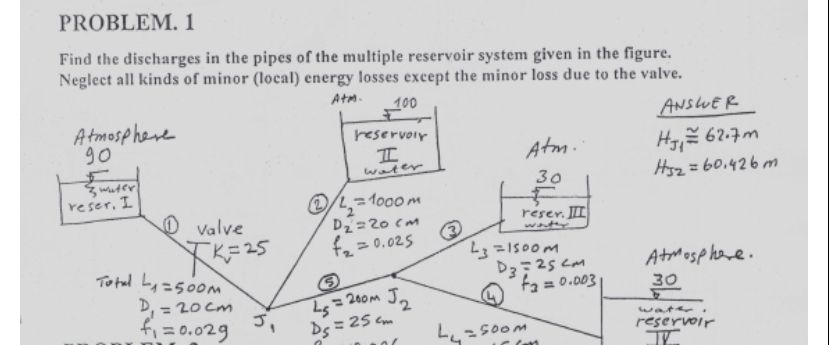 PROBLEM. 1
Find the discharges in the pipes of the multiple reservoir system given in the figure.
Neglect all kinds of minor (local) energy losses except the minor loss due to the valve.
Atm.
100
reservoir
II
water
ANSWER
HJ1 ≅ 62.7m
HJ2 = 60.426 m
Atmosphere
90
water
reser. I
Atm.
30
reser. III
water
① valve
Kv=25
② L2=1000m
D2=20 cm
f2=0.025
③ L3=1500m
D3=25cm
f3=0.003
Total L1=500m
D1=20cm
f1=0.029
J1
⑤
L5=200m J2
D5=25cm
④
L4=500m
Atmosphere.
30
water.
reservoir
IV